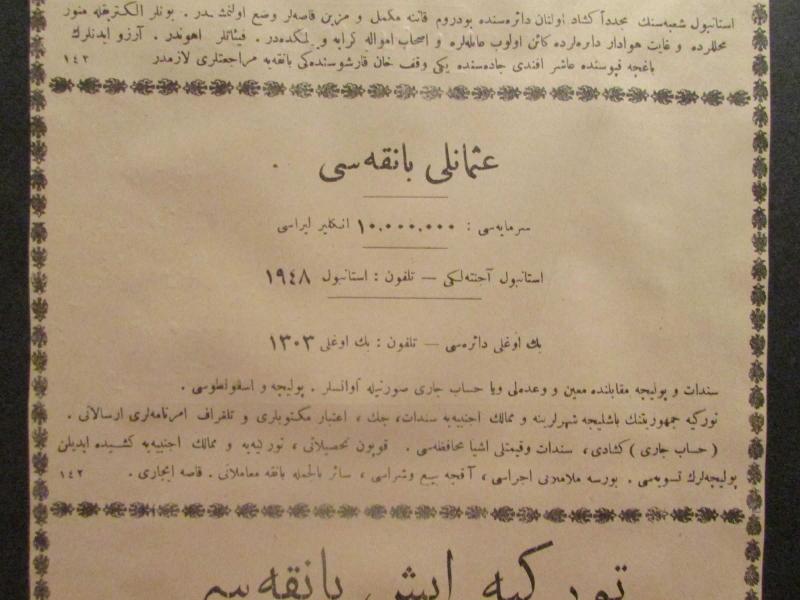 استانبول شعبه‌سنك مجدداً كشاد اولنان دائره‌سنده بودروم قاتنه مكمل و متين قاصه‌لر وضع اولنمشدر . بونلر الكتريقله منور
محللرده و غايت هوادار دائره‌لرده كائن اولوب عائله‌لره و اصحاب امواله كرايه ويرلمكده‌در . فيئاتلر اهوندر . آرزو ايدنلرك
باغچه قپوسنده عاشر افندى جاده‌سنده يكى وقف خان قارشوسنده‌كى بانقه‌يه مراجعتلرى لازمدر ١٤٢
عثمانلى بانقه‌سى
سرمايه‌سى : ١٠,٠٠٠,٠٠٠ انكليز ليراسى
استانبول آجنته‌لكى — تلفون : استانبول ١٩٤٨
بك اوغلى دائره‌سى — تلفون : بك اوغلى ١٣٠٣
سندات و پوليچه مقابلنده معين و وعده‌لى ويا حساب جارى صورتيله آوانسلر . پوليچه و اسقونطوسى .
توركيه جمهوريتنك باشليجه شهرلرينه و ممالك اجنبيه‌يه سندات، چك ، اعتبار مكتوبلرى و تلغراف امرنامه‌لرى ارسالاتى .
( حساب جارى ) كشادى ، سندات وقيمتلى اشيا محافظه‌سى . قوپون تحصيلاتى ، توركيه‌يه و ممالك اجنبيه‌يه كشيده ايديلن
پوليچه‌لرك تسويه‌سى . بورسه معاملاتى اجراسى ، آقچه بيع وشراسى ، سائر بالجمله بانقه معاملاتى . قاصه ايجارى . ١٤٢
توركيه ايش بانقه‌سى